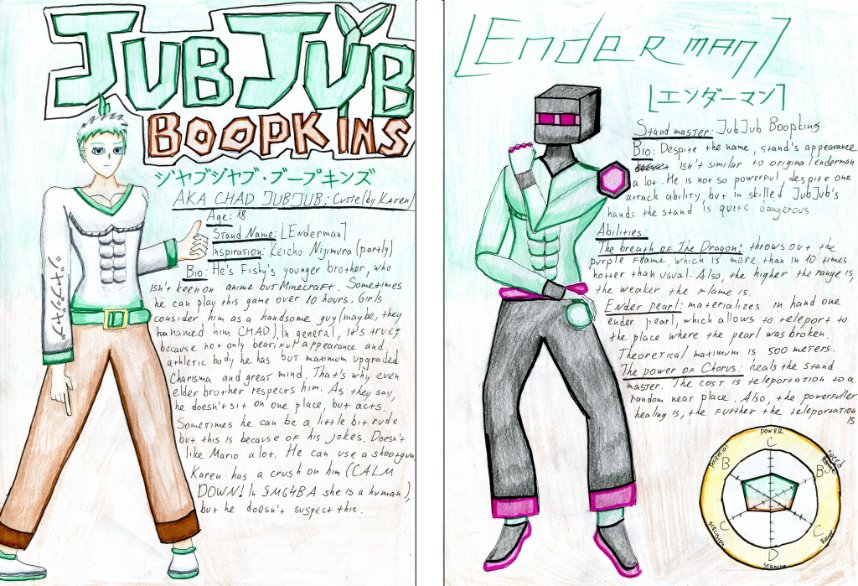 JUBJUB
BOOPKINS
ジャブジャブ・ブープキンズ
AKA CHAD JUBJUB; Cutie (by Karen)
Age: 18
Stand Name: [Enderman]
Inspiration: Keicho Nijimura (partly)
Bio: He's Fishy's younger brother, who
isn't keen on anime but Minecraft. Sometimes
he can play this game over 10 hours. Girls
consider him as a handsome guy (maybe, they
named him CHAD). In general, it's true,
because not only beatiful appearance and
athletic body he has but maximum upgraded
Charisma and great mind. That's why even
elder brother respects him. As they say,
he doesn't sit on one place, but acts.
Sometimes he can be a little bit rude
but this is because of his jokes. Doesn't
like Mario a lot. He can use a shootgun
Karen has a crush on him (CALM
DOWN! In SMG4BA she is a human),
but he doesn't suspect this.
[Enderman]
[エンダーマン]
Stand master: JubJub Boopkins
Bio: Despite the name, stand's appearance
isn't similar to original enderman
a lot. He is not so powerful, despite one
attack ability, but in skilled JubJub's
hands the stand is quite dangerous
Abilities
The breath of The Dragon: throws out the
purple flame which is more than in 10 times
hotter than usual. Also, the higher the range is,
the weaker the flame is.
Ender pearl: materializes in hand one
ender pearl, which allows to teleport to
the place where the pearl was broken.
Theoretical maximum is 500 meters.
The power of Chorus: heals the stand
master. The cost is teleportation to a
random near place. Also, the powerfuller
healing is, the further the teleportation
is
POWER
C
B
B
C
C
D